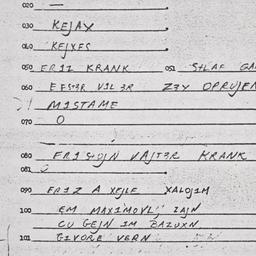 020 —
030 KEJAX
040 KEJXES
050 ERIZ KRANK 051 SHLAF GA
060 EESTER VIL ER ZEY OPRUJEN
MISTAME
070 O
080 FRISHDJN VAJTER KRANK
081
090 FRIZ A XEJLE XALOJIM
100 EM MAXIMOVL; ZAJN
CU GEJN IM BAZUXN
101 GIVORE VERN